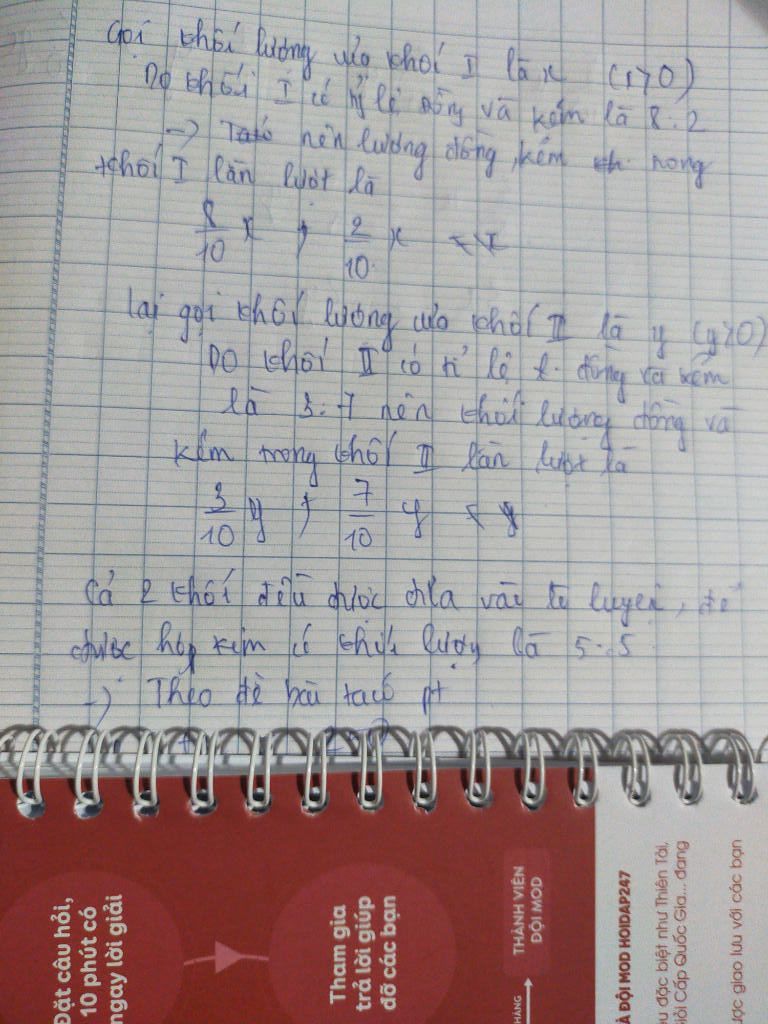 Gọi khối lượng của khối I là x (x>0)
Do khối I có tỷ lệ đồng và kẽm là 8:2
→ nên lượng đồng, kẽm trong
khối I lần lượt là
8/10 x ; 2/10 x
Lại gọi khối lượng của khối II là y (y>0)
Do khối II có tỉ lệ đồng và kẽm
là 3:7 nên khối lượng đồng và
kẽm trong khối II lần lượt là
3/10 y ; 7/10 y
Cả 2 khối đều được đưa vào lò luyện, để
được hợp kim có khối lượng là 5:5
→ Theo đề bài ta có pt
Đặt câu hỏi,
10 phút có
ngay lời giải
Tham gia
trả lời giúp
đỡ các bạn
THÀNH VIÊN
ĐỘI MOD
HÀNG
À ĐỘI MOD HOIDAP247
đặc biệt như Thiên Tài,
Giỏi Cấp Quốc Gia... đang
giao lưu với các bạn